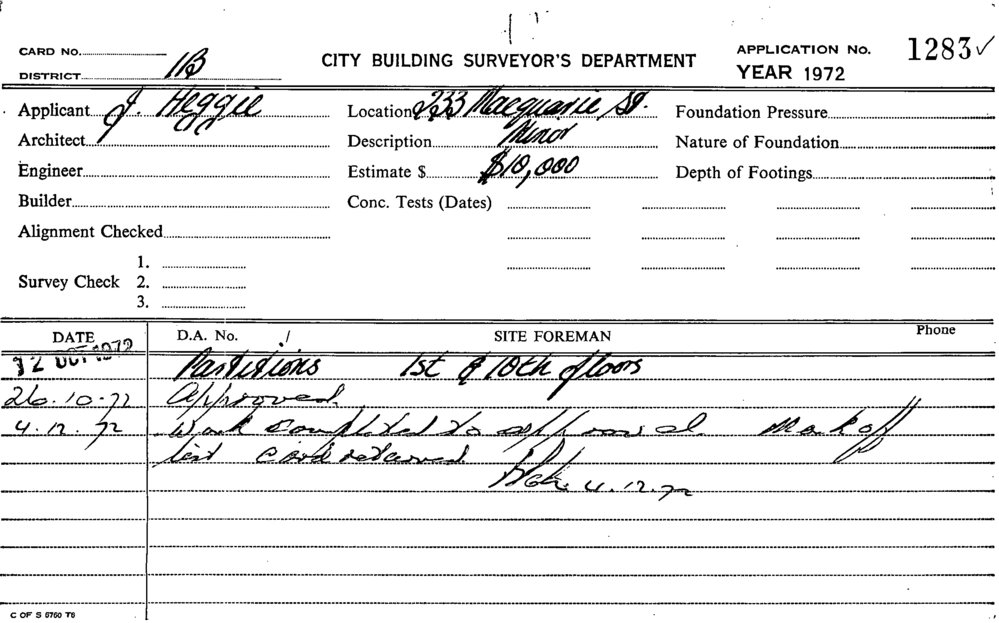 CARD No. CITY BUILDING SURVEYOR'S DEPARTMENT APPLICATION No. 1283 ✓
DISTRICT 1B YEAR 1972
Applicant J. Heggie Location 233 Macquarie St. Foundation Pressure
Architect Description Minor Nature of Foundation
Engineer Estimate $ $10,000 Depth of Footings
Builder Conc. Tests (Dates)
Alignment Checked
1.
Survey Check 2.
3.
DATE D.A. No. / SITE FOREMAN Phone
12 OCT 1972 Partitions 1st & 10th floors
26.10.72 Approved.
4.12.72 Work completed to approval. Mark off
list card returned.
4.12.72
C OF S 5760 T6